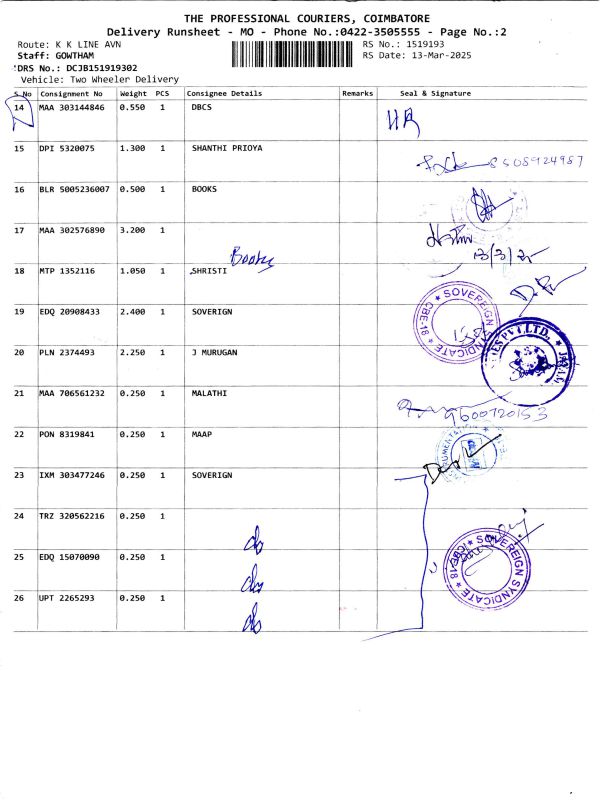 THE PROFESSIONAL COURIERS, COIMBATORE
Delivery Runsheet - MO - Phone No.:0422-3505555 - Page No.:2
Route: K K LINE AVN
RS No.: 1519193
Staff: GOWTHAM
RS Date: 13-Mar-2025
DRS No.: DCJB151919302
Vehicle: Two Wheeler Delivery
S.No Consignment No Weight PCS Consignee Details Remarks Seal & Signature
14 MAA 303144846 0.550 1 DBCS
15 DPI 5320075 1.300 1 SHANTHI PRIOYA 8508924987
16 BLR 5005236007 0.500 1 BOOKS
17 MAA 302576890 3.200 1
13/3/25
Books
18 MTP 1352116 1.050 1 SHRISTI
19 EDQ 20908433 2.400 1 SOVERIGN
SOVEREIGN SYNDICATE ★ CBE-18 ★
20 PLN 2374493 2.250 1 J MURUGAN
PVT.LTD.
21 MAA 706561232 0.250 1 MALATHI
9600720153
22 PON 8319841 0.250 1 MAAP
23 IXM 303477246 0.250 1 SOVERIGN
24 TRZ 320562216 0.250 1
do
25 EDQ 15070090 0.250 1
do
26 UPT 2265293 0.250 1
do
SOVEREIGN SYNDICATE ★ CBE-18 ★